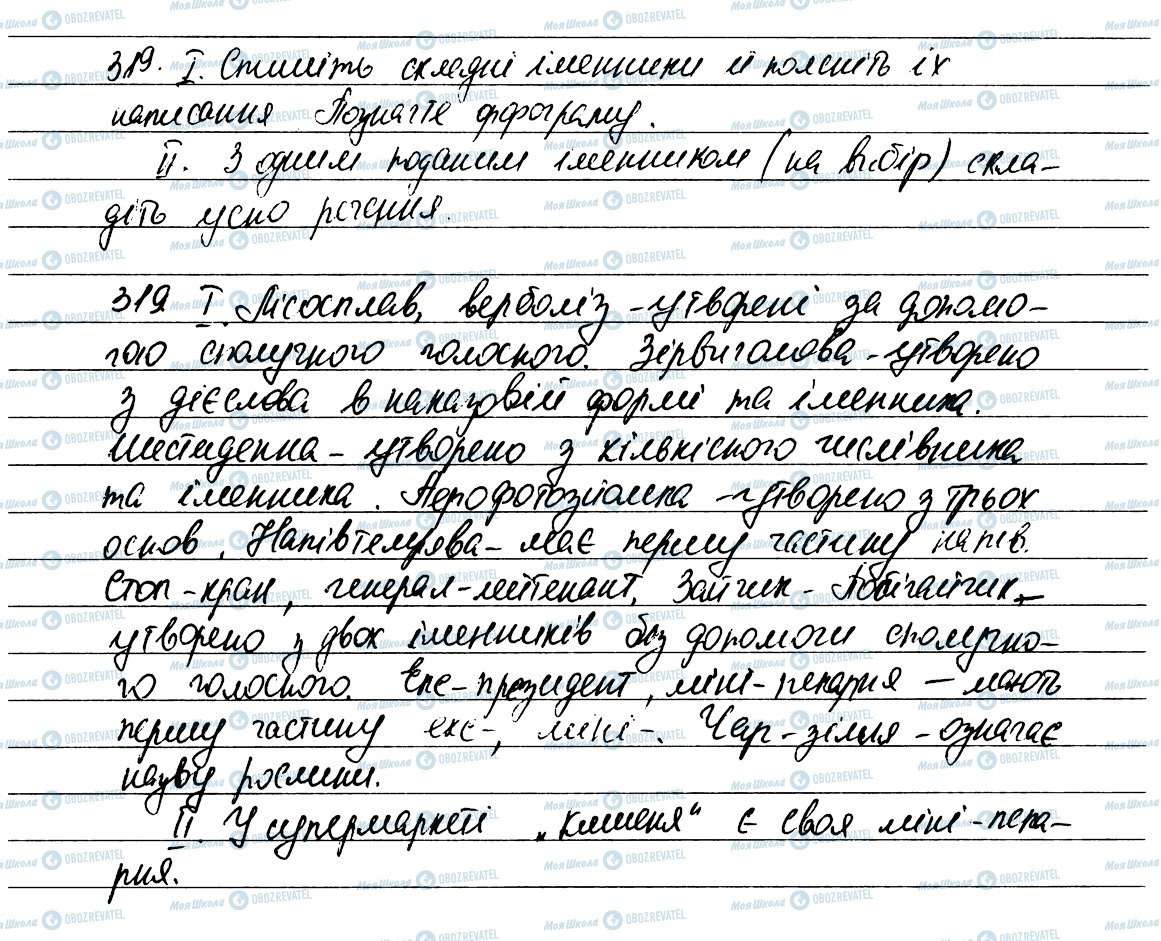 319. I. Спишіть складні іменники й поясніть їх
написання Позначте орфограму.
II. З одним поданим іменником (на вибір) скла-
діть усно речення.
319 I. Лісосплав, верболіз - утворені за допомо-
гою сполучного голосного. Зірвиголова - утворено
з дієслова в наказовій формі та іменника.
Шестиденка - утворено з кількісного числівника
та іменника. Аерофотозйомка - утворено з трьох
основ. Напівтемрява - має першу частину напів.
Стоп-кран, генерал-лейтенант, Зайчик-Побігайчик -
утворено з двох іменників без допомоги сполучно-
го голосного. Екс-президент, міні-пекарня - мають
першу частину екс-, міні-. Чар-зілля - означає
назву рослини.
II. У супермаркеті „Кишеня" є своя міні-пека-
рня.